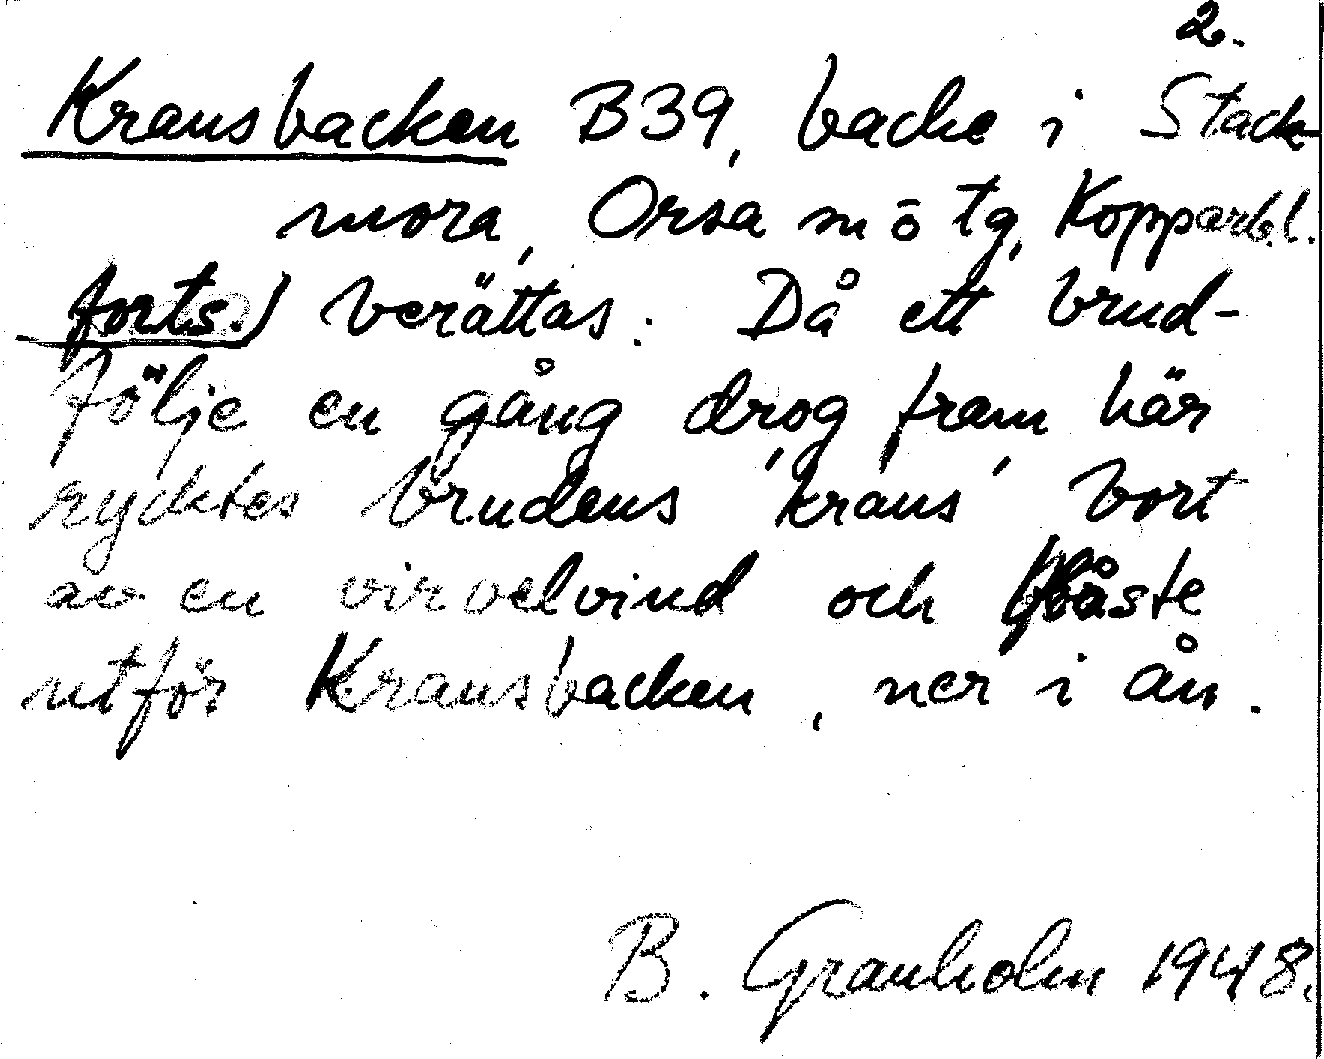 2.
Kransbacken B39, backe i Stack-
mora, Orsa sn ō tg, Kopparb.l.
forts.) berättas: Då ett brud-
följe en gång drog fram här
rycktes brudens 'krans' bort
av en virvelvind och blåste
utför Kransbacken, ner i ån.
B. Granholm 1948.